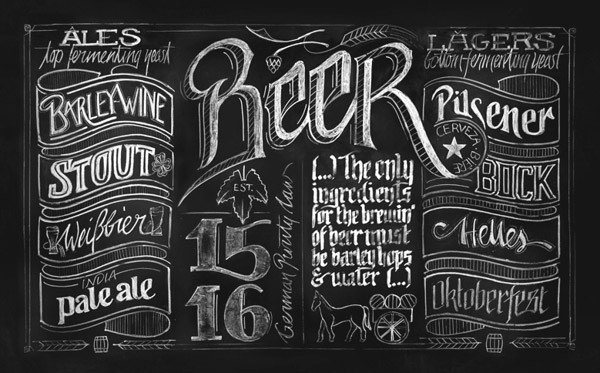 ALES
top fermenting yeast
BARLEY-WINE
STOUT
Weißbier
INDIA
pale ale
BEER
EST.
15
16
German Purity Law
(...) The only
ingredients
for the brewin'
of beer must
be barley hops
& water (...)
LAGERS
bottom fermenting yeast
Pilsener
CERVEZA BIERE
BOCK
Helles
Oktoberfest